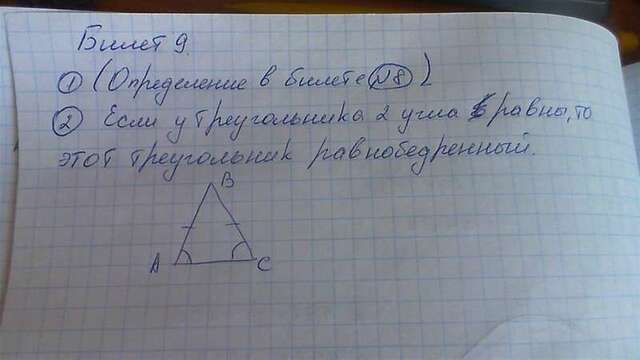 Билет 9.
① (Определение в билете №8)
② Если у треугольника 2 угла равны, то
этот треугольник равнобедренный.
B
A C